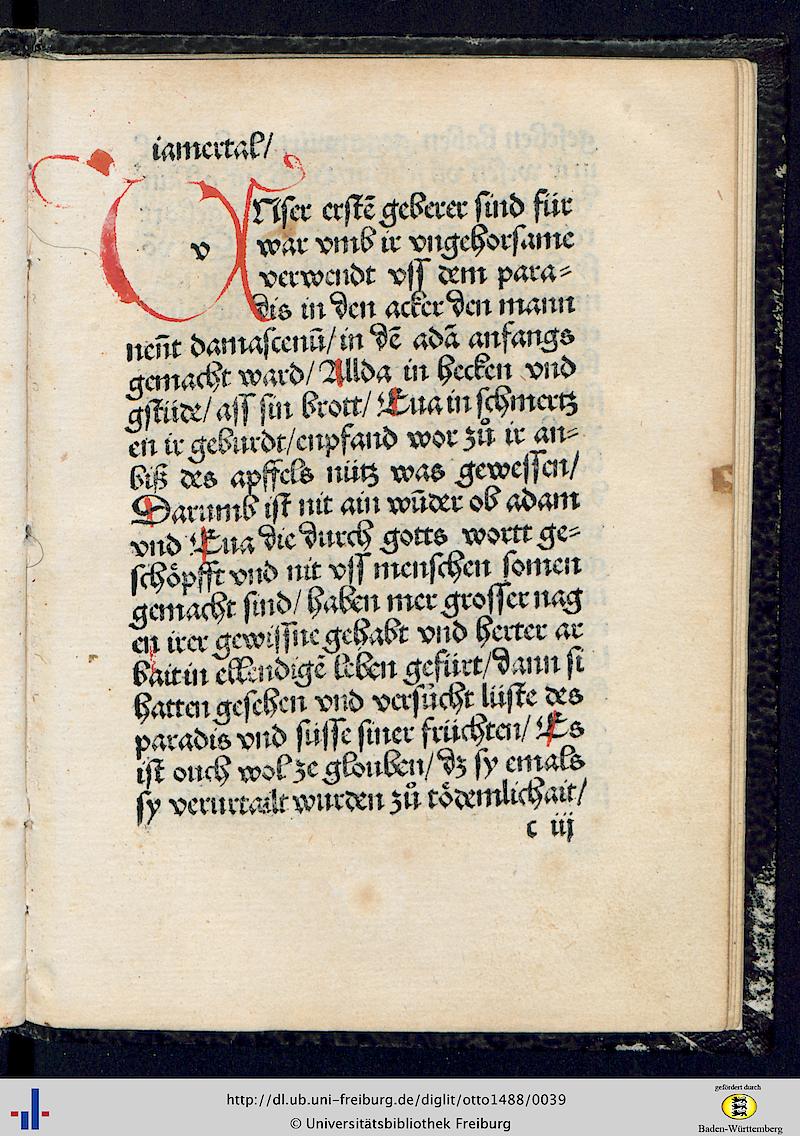 iamertal/
VNser erstē geberer sind für
v war vmb ir vngehorsame
verwendt vss dem para=
dis in den acker den mann
neñt damascenū/in dē adā anfangs
gemacht ward/Allda in hecken vnd
gstüde/ass sin brott/Eua in schmertz
en ir geburdt/enpfand wor zů ir an=
biß des apffels nütz was gewessen/
Darumb ist nit ain wūder ob adam
vnd Eua die durch gotts wortt ge=
schöpfft vnd nit vss menschen somen
gemacht sind/haben mer grosser nag
en irer gewissne gehabt vnd herter ar
bait in ellendigē leben gefürt/dann si
hatten gesehen vnd versůcht lüste des
paradis vnd süsse siner früchten/Es
ist ouch wol ze glouben/dz sy emals
sy verurtailt wurden zů tödemlichait/
c iij
http://dl.ub.uni-freiburg.de/diglit/otto1488/0039
© Universitätsbibliothek Freiburg
gefördert durch
Baden-Württemberg